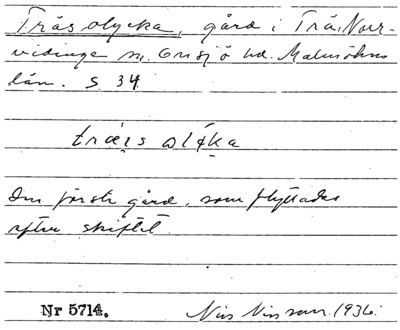 Trås olycka, gård i Trå, Norr-
vidinge sn, Onsjö hd. Malmöhus
län. S. 34
træs olyka
Den första gård, som flyttades
efter skiftet.
Nr 5714. Nils Nilsson. 1936.